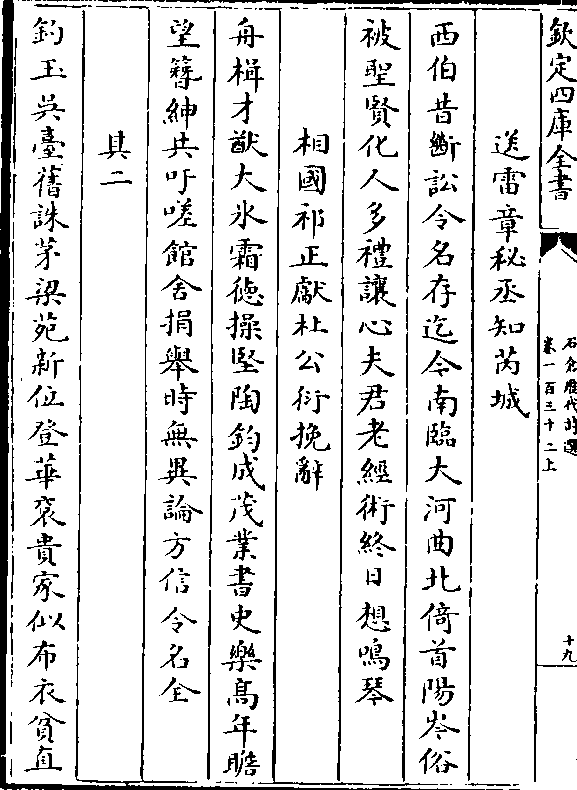 欽定四庫全書
石倉歷代詩選
卷一百三十二上
十九
送雷章秘丞知芮城
西伯昔斷訟令名存迄今南臨大河曲北倚首陽岑俗
被聖賢化人多禮讓心夫君老經術終日想鳴琴
相國祁正獻杜公衍挽辭
舟楫才猷大氷霜徳操堅陶鈞成茂業書史樂髙年瞻
望簪紳共吁嗟館舍捐舉時無異論方信令名全
其二
釣玉吳臺舊誅茅梁苑新位登華衮貴家似布衣貧直